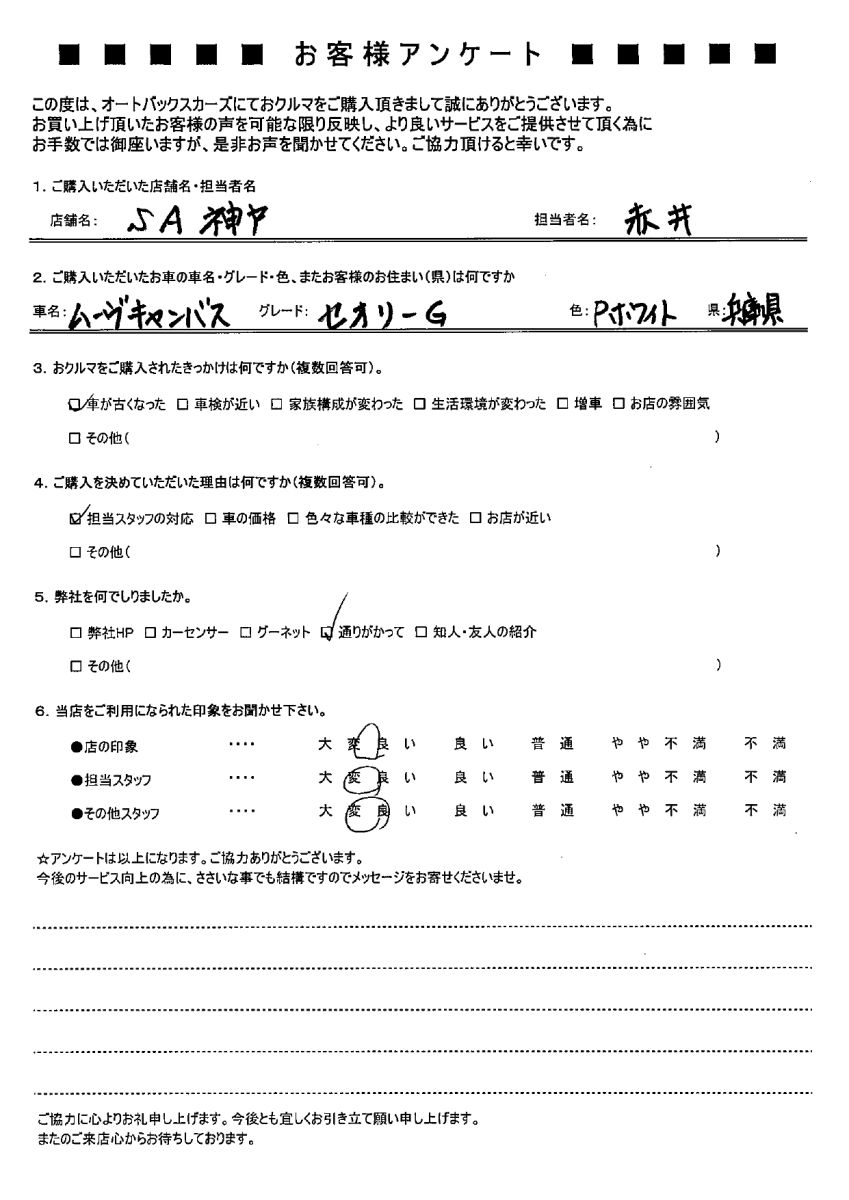 ■ ■ ■ ■ ■ お客様アンケート ■ ■ ■ ■ ■
この度は、オートバックスカーズにておクルマをご購入頂きまして誠にありがとうございます。
お買い上げ頂いたお客様の声を可能な限り反映し、より良いサービスをご提供させて頂く為に
お手数では御座いますが、是非お声を聞かせてください。ご協力頂けると幸いです。
1. ご購入いただいた店舗名・担当者名
店舗名: SA 神ヤ 担当者名: 赤井
2. ご購入いただいたお車の車名・グレード・色、またお客様のお住まい(県)は何ですか
車名: ムーヴキャンバス グレード: セオリーG 色: Pホワイト 県: 兵庫県
3. おクルマをご購入されたきっかけは何ですか(複数回答可)。
☑車が古くなった □ 車検が近い □ 家族構成が変わった □ 生活環境が変わった □ 増車 □ お店の雰囲気
□ その他( )
4. ご購入を決めていただいた理由は何ですか(複数回答可)。
☑担当スタッフの対応 □ 車の価格 □ 色々な車種の比較ができた □ お店が近い
□ その他( )
5. 弊社を何でしりましたか。
□ 弊社HP □ カーセンサー □ グーネット ☑通りがかって □ 知人・友人の紹介
□ その他( )
6. 当店をご利用になられた印象をお聞かせ下さい。
●店の印象 ‥‥ 大変良い 良い 普通 やや不満 不満
●担当スタッフ ‥‥ 大変良い 良い 普通 やや不満 不満
●その他スタッフ ‥‥ 大変良い 良い 普通 やや不満 不満
☆アンケートは以上になります。ご協力ありがとうございます。
今後のサービス向上の為に、ささいな事でも結構ですのでメッセージをお寄せくださいませ。
ご協力に心よりお礼申し上げます。今後とも宜しくお引き立て願い申し上げます。
またのご来店心からお待ちしております。